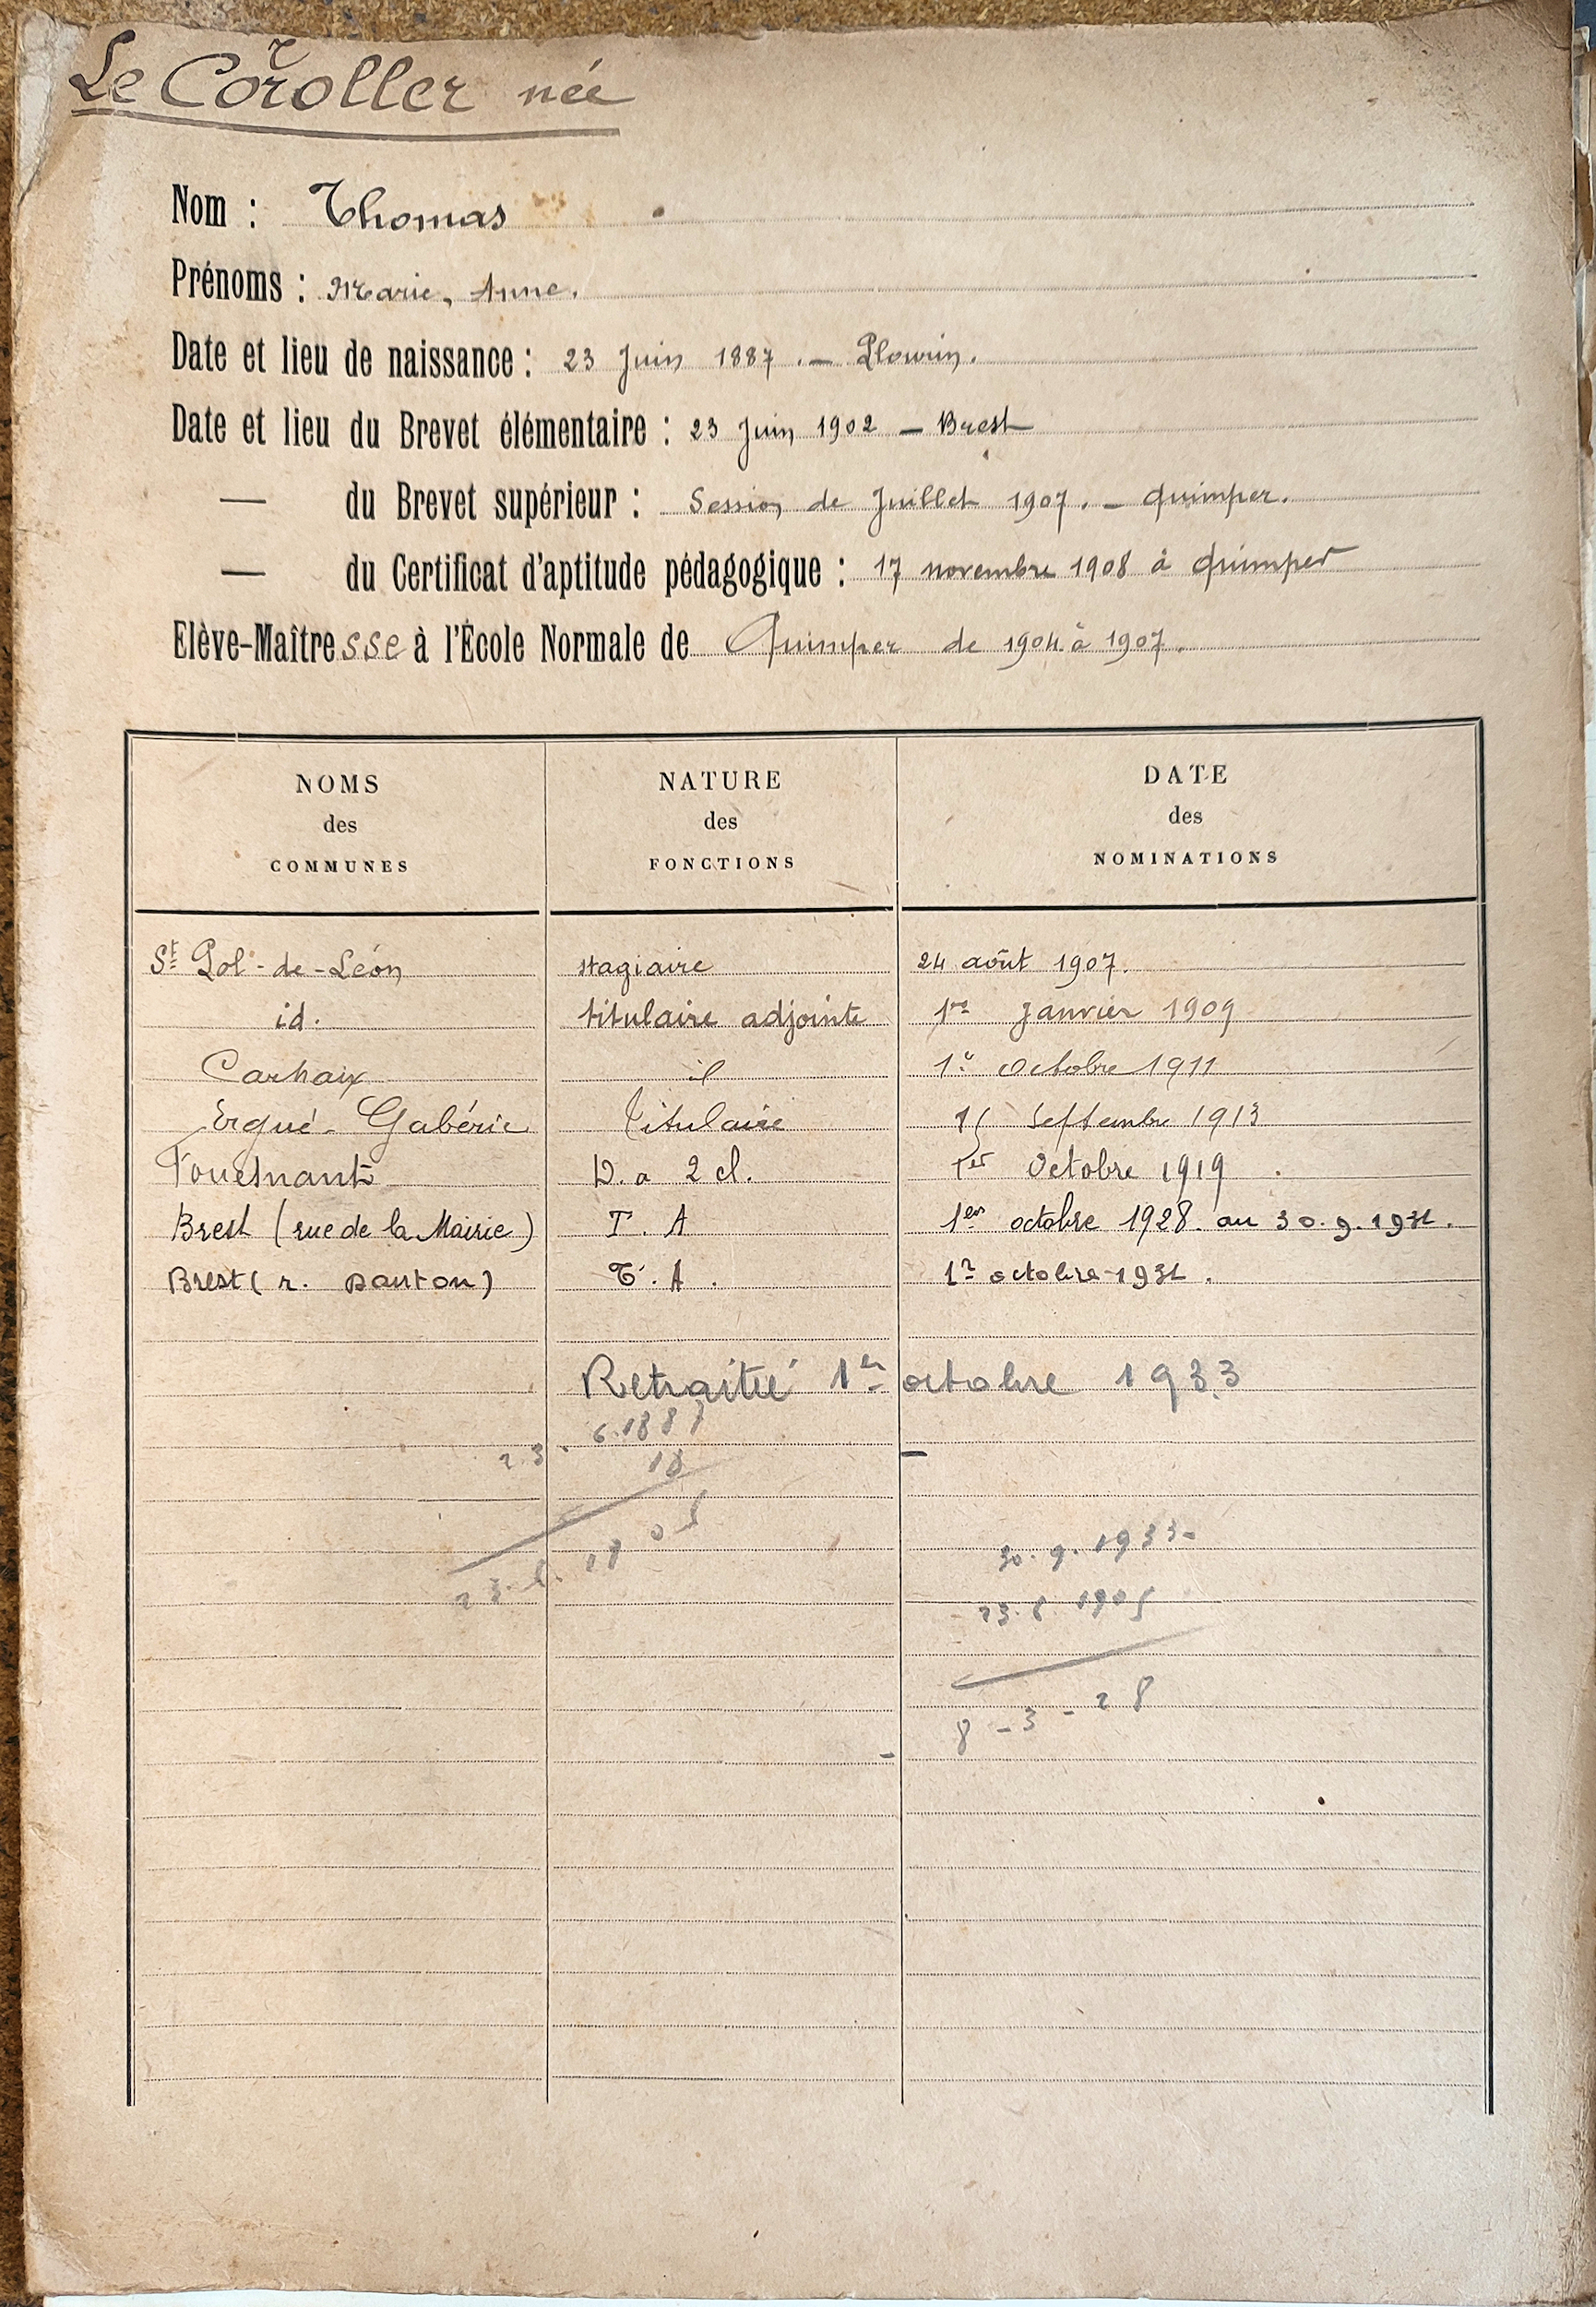 Le Coroller née
Nom : Thomas
Prénoms : Marie, Anne.
Date et lieu de naissance : 23 Juin 1887. — Plourin.
Date et lieu du Brevet élémentaire : 23 Juin 1902 — Brest
— du Brevet supérieur : Session de Juillet 1907. — Quimper.
— du Certificat d'aptitude pédagogique : 17 novembre 1908 à Quimper
Elève-Maîtresse à l'École Normale de Quimper de 1904 à 1907.
NOMS des COMMUNES
NATURE des FONCTIONS
DATE des NOMINATIONS
St Pol-de-Léon stagiaire 24 août 1907.
id. titulaire adjointe 1er Janvier 1909
Carhaix id 1er Octobre 1911
Ergué-Gabéric Titulaire Septembre 1913
Fouesnant D. a 2 cl. 1er Octobre 1919.
Brest (rue de la Mairie) T. A 1er octobre 1928 au 30.9.1931.
Brest (r. Danton) T. A. 1er octobre 1931.
Retraitée 1er octobre 1933
23. 6.1887
18
23.6.1905
30.9.1933
23.6.1905
8 - 3 - 28